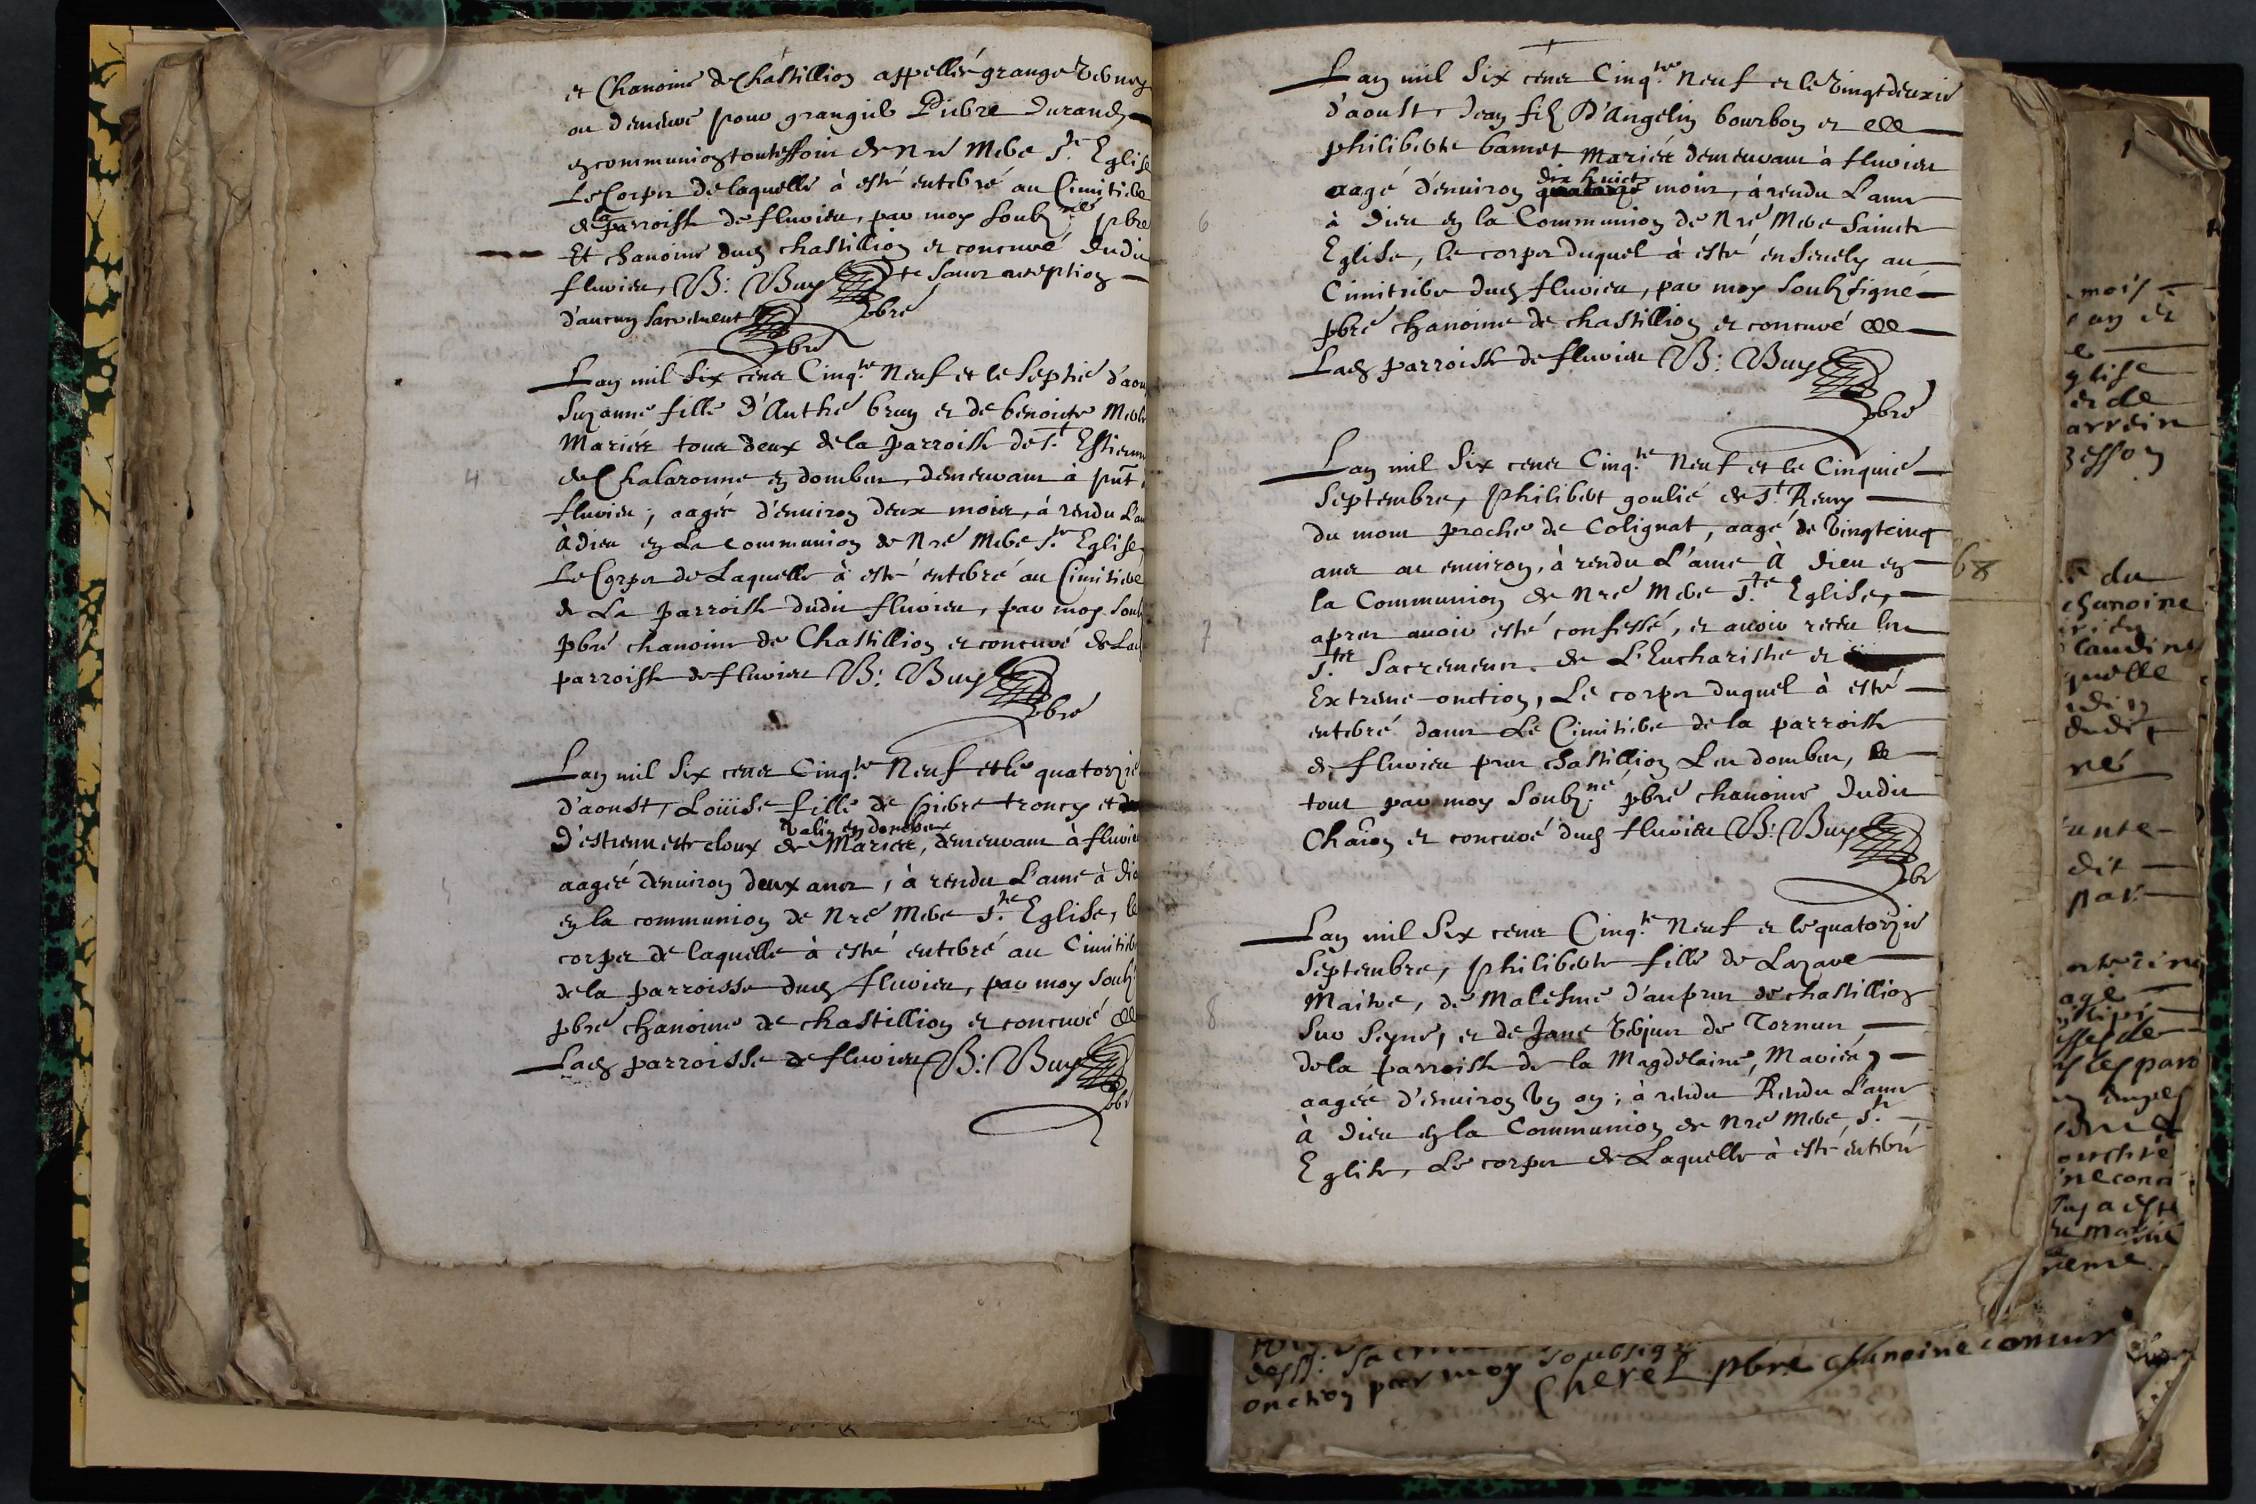 et Chanoine de Chastillion appellée grange
ou demeure pour grangier Pierre Durand
en communion toutesfois de Nre Mere Ste Eglise
Le Corps de laquelle à esté enterré au Cimitiere
de la parroisse de fluvieu, par moy soubz.né pbre
Et chanoine dud chastillion et concuré dudit
fluvieu, B: Buy pbré + sans reception
d'aucun sacrement pbré
4
Lan mil six cens Cinq.te Neuf et le Septié d'aou
Suzanne fille d'Anthé brun et de benoiste
Mariés tous deux de la parroisse de St Estienne
de Chalaronne en dombes, demeurans à pnt
fluvieu, aagée d'environ deux mois, à rendu L'am
À dieu en La Communion de Nré Mere Ste Eglise,
Le Corps de Laquelle à esté enterré au Cimitieré
de La parroisse dudit fluvieu, par moy soub
pbré chanoine de Chastillion et concuré de Lad
parroisse de fluvieu B: Buy
pbré
Lan mil Six cens Cinq.te Neuf et le quatorzié
d'aoust, Loüise fille de pierre troncy et
valin en dombes
D'estiennette cloux de Mariée, demeurans à fluvieu
aagée denviron deux ans, à rendu L'ame à die
en la communion de Nré Mere S.te Eglise, le
corps de laquelle à esté enterré au Cimitier
de la parroisse dud fluvieu, par moy soubz
pbré chanoine de chastillion et concuré de
Lad parroisse de fluvieu B: Buy
pbr
Lan mil Six cens Cinq.te Neuf et le vingtdeuxié
d'aoust, Jean filz D'Angelin bourbon et de
philiberte bamet Mariée demeurans à fluvieu
dix huict
aagé d'environ quatorze mois, à rendu L'ame
6
à dieu en la Communion de Nré Mere Saincte
Eglise, le corps duquel à esté ensevely au
Cimitiere dud fluvieu, par moy soubzsigné
pbré chanoine de chastillion et concuré de
Lad parroisse de fluvieu B: Buy
pbré
Lan mil Six cens Cinq.te Neuf et le Cinquié
Septembre, philibert goulié de St Remy
du mont proche de Colignat, aagé de vingtcinq
ans ou environ, à rendu L'ame À dieu en
68
la Communion de Nré Mere S.te Eglise,
7
apres avoir esté confessé, et avoir receu les
S.tes Sacremens de L'Eucharistie et
Extreme-onction, Le corps duquel à esté
enterré dans Le Cimitiere de la parroisse
de fluvieu pres chastillion Les dombes, le
tout par moy soubz.né pbré chanoine dudit
Chaon et concuré dud fluvieu B: Buy
pbr
Lan mil Six cens Cinq.te Neuf et le quatorzié
Septembre, philiberte fille de Lazare
Maitre, de Malesme d'aupres de chastillion
8
sur Seyne, et de Jane de Tornun,
de la parroisse de la Magdelaine, Mariés,
aagée d'environ un an; à rendu Rendu L'ame
à Dieu en la Communion de Nré Mere, S.te
Eglise, Le corps de Laquelle à esté enterré
mois
glise
et de
du
chanoine
quelle
dudit
né
dit
par
soubsig
onction par moy Cheret pbre chanoine